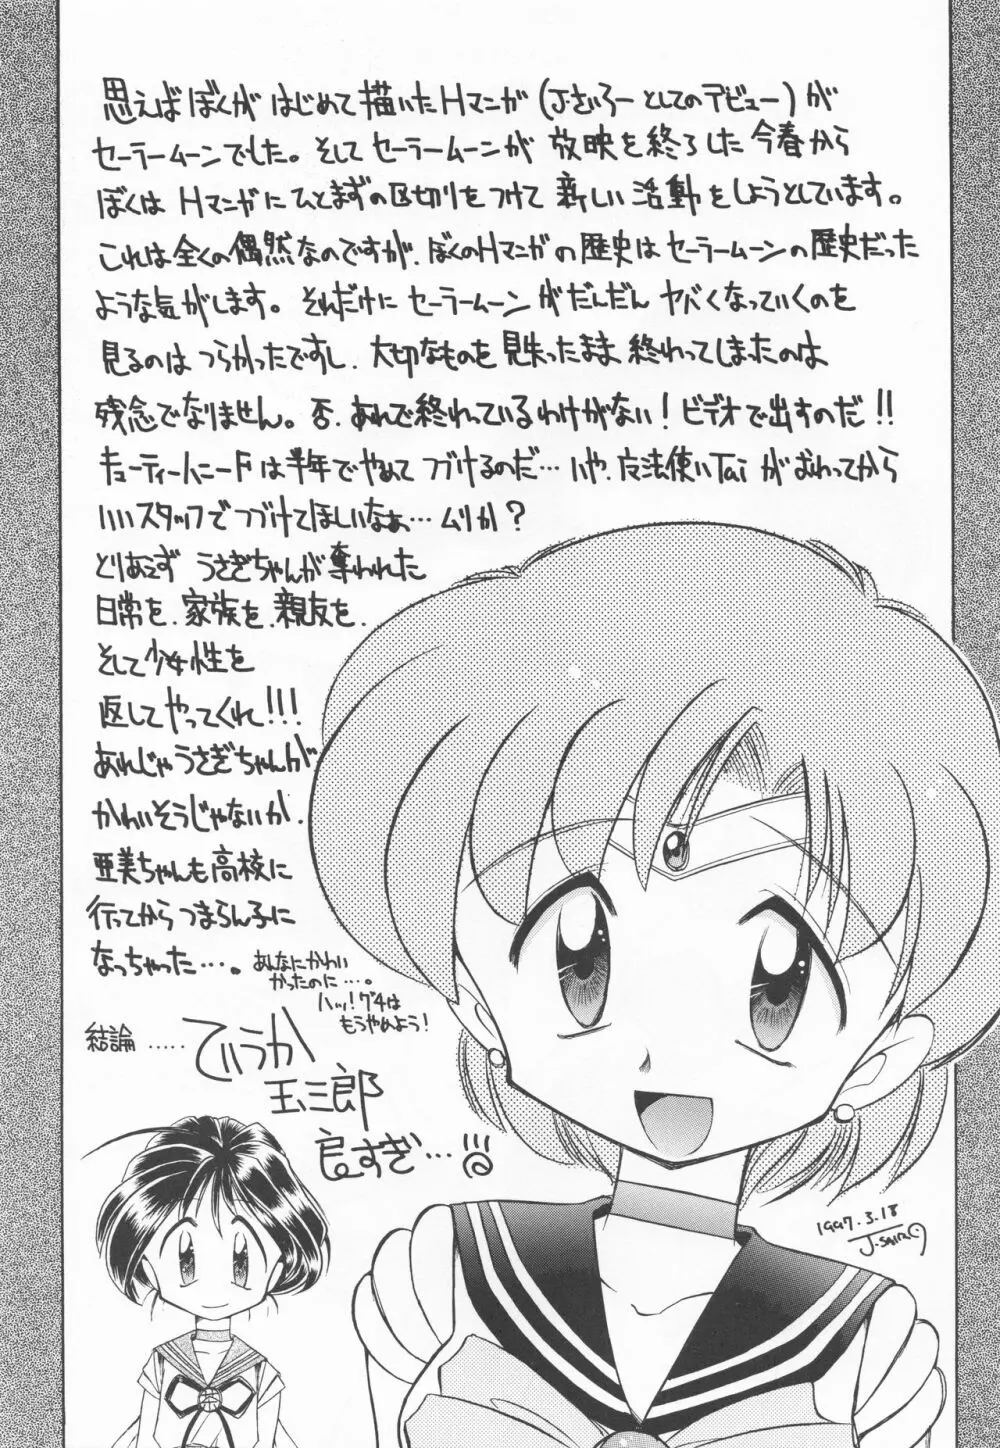 思えば ぼくが はじめて 描いた Hマンガ (J・さいろーとしてのデビュー) が
セーラームーンでした。そして セーラームーンが 放映を終了した 今春から
ぼくは Hマンガに ひとまずの区切りをつけて 新しい 活動をしようとしています。
これは全くの偶然なのですが、ぼくのHマンガの歴史は セーラームーンの歴史だった
ような気がします。それだけに セーラームーンがだんだん ヤバくなっていくのを
見るのは つらかったですし、大切なものを 見失ったまま 終わってしまったのは
残念でなりません。否、あれで終われているわけがない! ビデオで出すのだ!!
キューティーハニーFは半年でやめて つづけるのだ… いや、魔法使いTaiが おわってから
いいスタッフで つづけてほしいなぁ… ムリか?
とりあえず うさぎちゃんが奪われた
日常を、家族を、親友を、
そして少女性を
返してやってくれ!!!
あれじゃうさぎちゃんが
かわいそうじゃないか、
亜美ちゃんも高校に
行ってから つまらん子に
なっちゃった…。
あんなにかわい
かったのに…。
ハッ!グチは
もうやめよう!
結論 …..
てゆうか
玉三郎
良すぎ…!!
1997.3.18
J.SAIRO